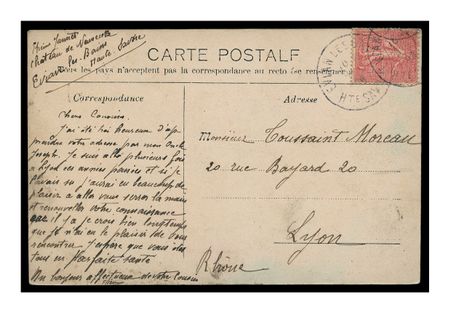 Château de
Evian les Bains
Haute Savoie
CARTE POSTALE
pays n'acceptent pas la correspondance au recto se renseigner
Correspondance
Adresse
EVIAN LES
HTE SAV
Chers Cousins
J'ai été bien heureux d'ap
prendre votre adresse par mon oncle
Joseph. Je suis allé plusieurs fois
à Lyon ces années passées et si je
l'avais su j'aurai eu beaucoup de
plaisir à aller vous serrer la main
et renouveller votre connaissance
car il y a je crois bien longtemps
que je n'ai eu le plaisir de vous
rencontrer. J'espère que vous êtes
tous en parfaite santé
Un bonjour affectueux de votre Cousin
Monsieur Toussaint Moreau
20 rue Bayard 20
Lyon
Rhône